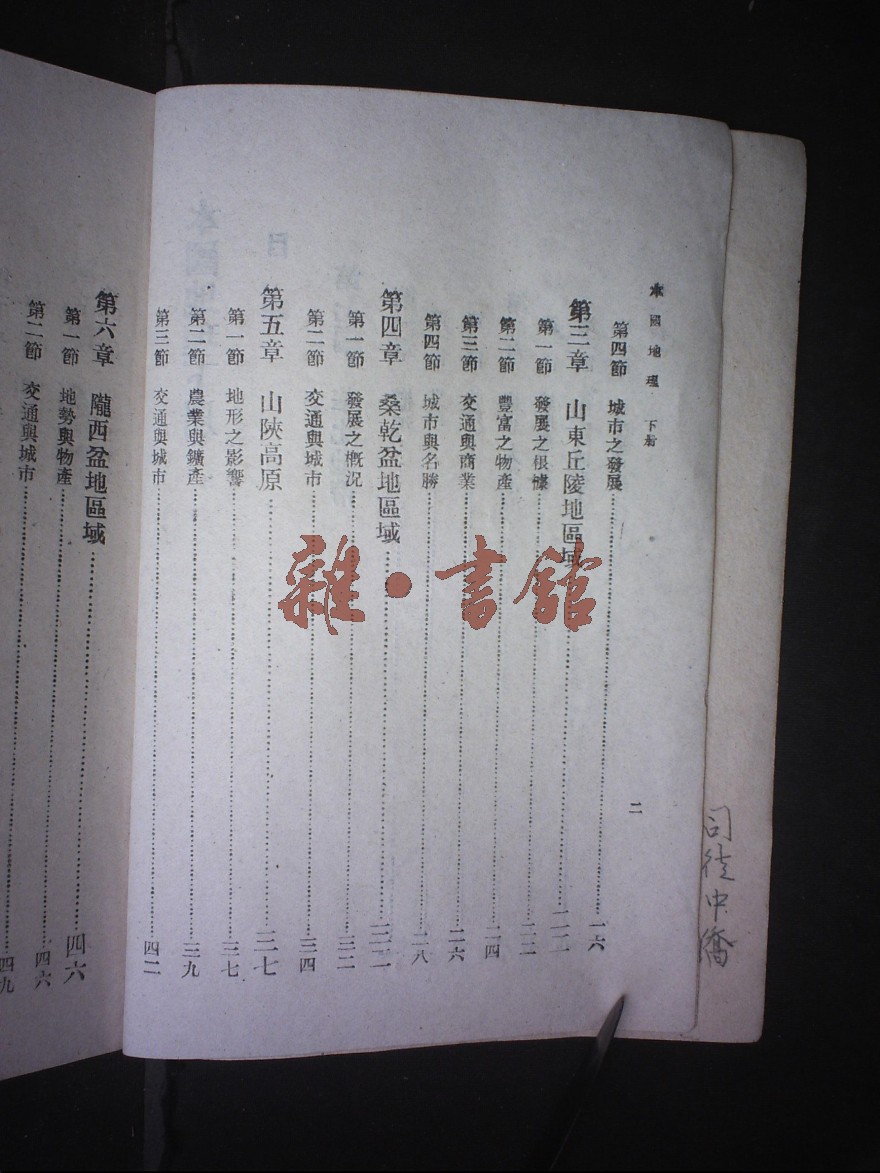 本國地理 下册
二
第四節 城市之發展……一六
第三章 山東丘陵地區域……二二
第一節 發展之根據……二二
第二節 豐富之物產……二四
第三節 交通與商業……二六
第四節 城市與名勝……二八
第四章 桑乾盆地區域……三二
第一節 發展之概況……三二
第二節 交通與城市……三四
第五章 山陝高原……三七
第一節 地形之影響……三七
第二節 農業與鑛產……三九
第三節 交通與城市……四二
第六章 隴西盆地區域……四六
第一節 地勢與物產……四六
第二節 交通與城市……四九
雜·書館
司徒中僑